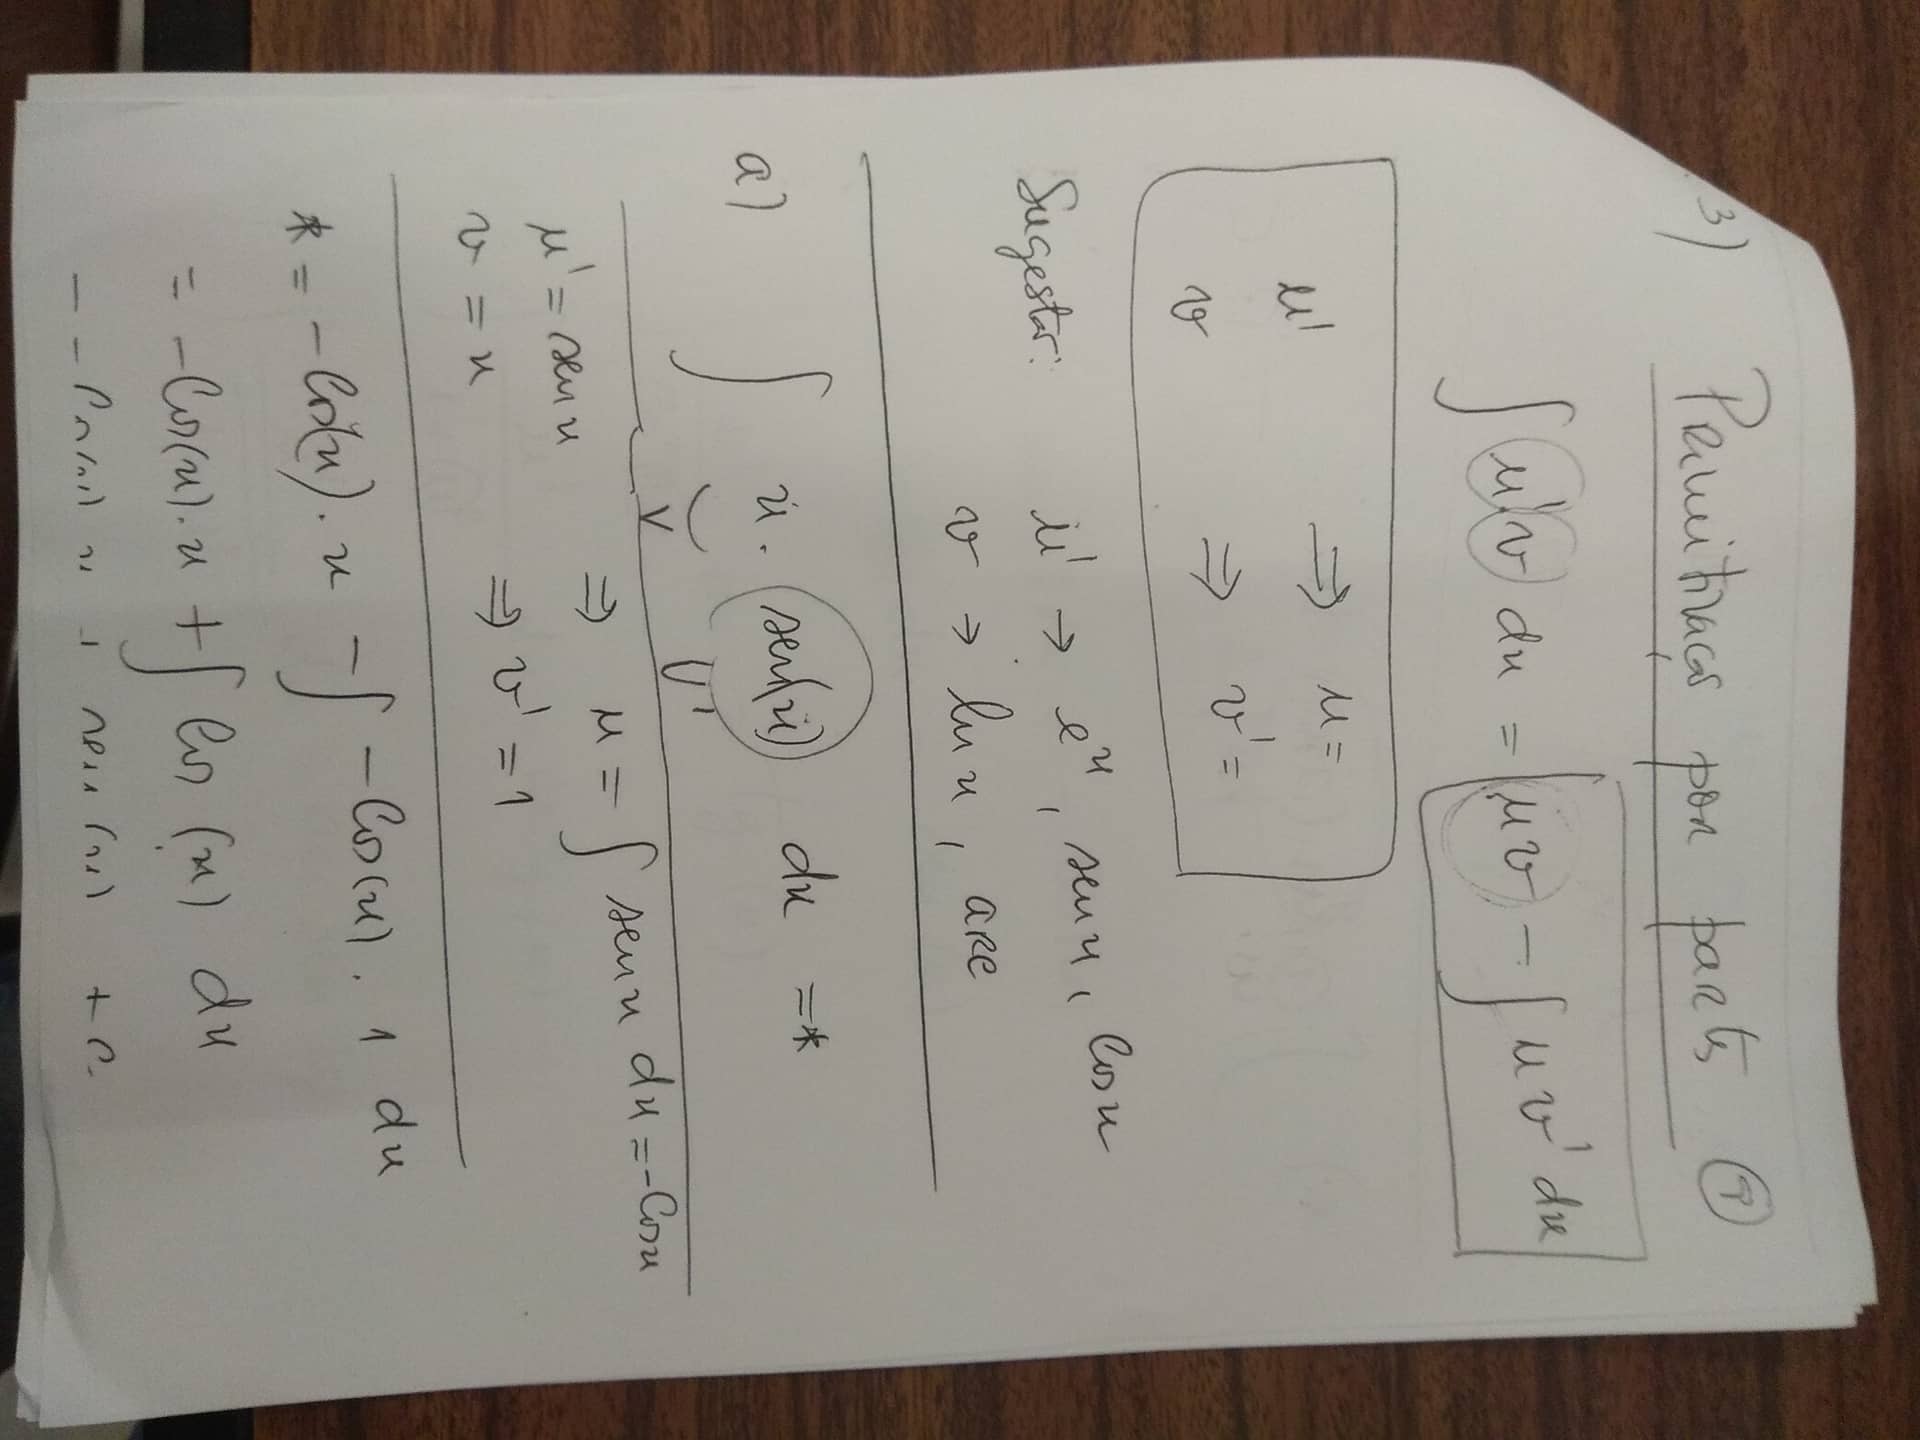 3) Primitivaças por parts 1
∫ u' v dx = uv - ∫ u v' dx
u' ⇒ u =
v ⇒ v' =
Sugestão: u' → e^x, sen x, Cos x
v → ln x, arc
a) ∫ x . sen(x) dx = *
V U'
u' = sen x ⇒ u = ∫ sen x dx = -Cos x
v = x ⇒ v' = 1
* = -Cos(x) . x - ∫ -Cos(x) . 1 dx
= -Cos(x) . x + ∫ Cos (x) dx
= -Cos(x) x + sen (x) + C